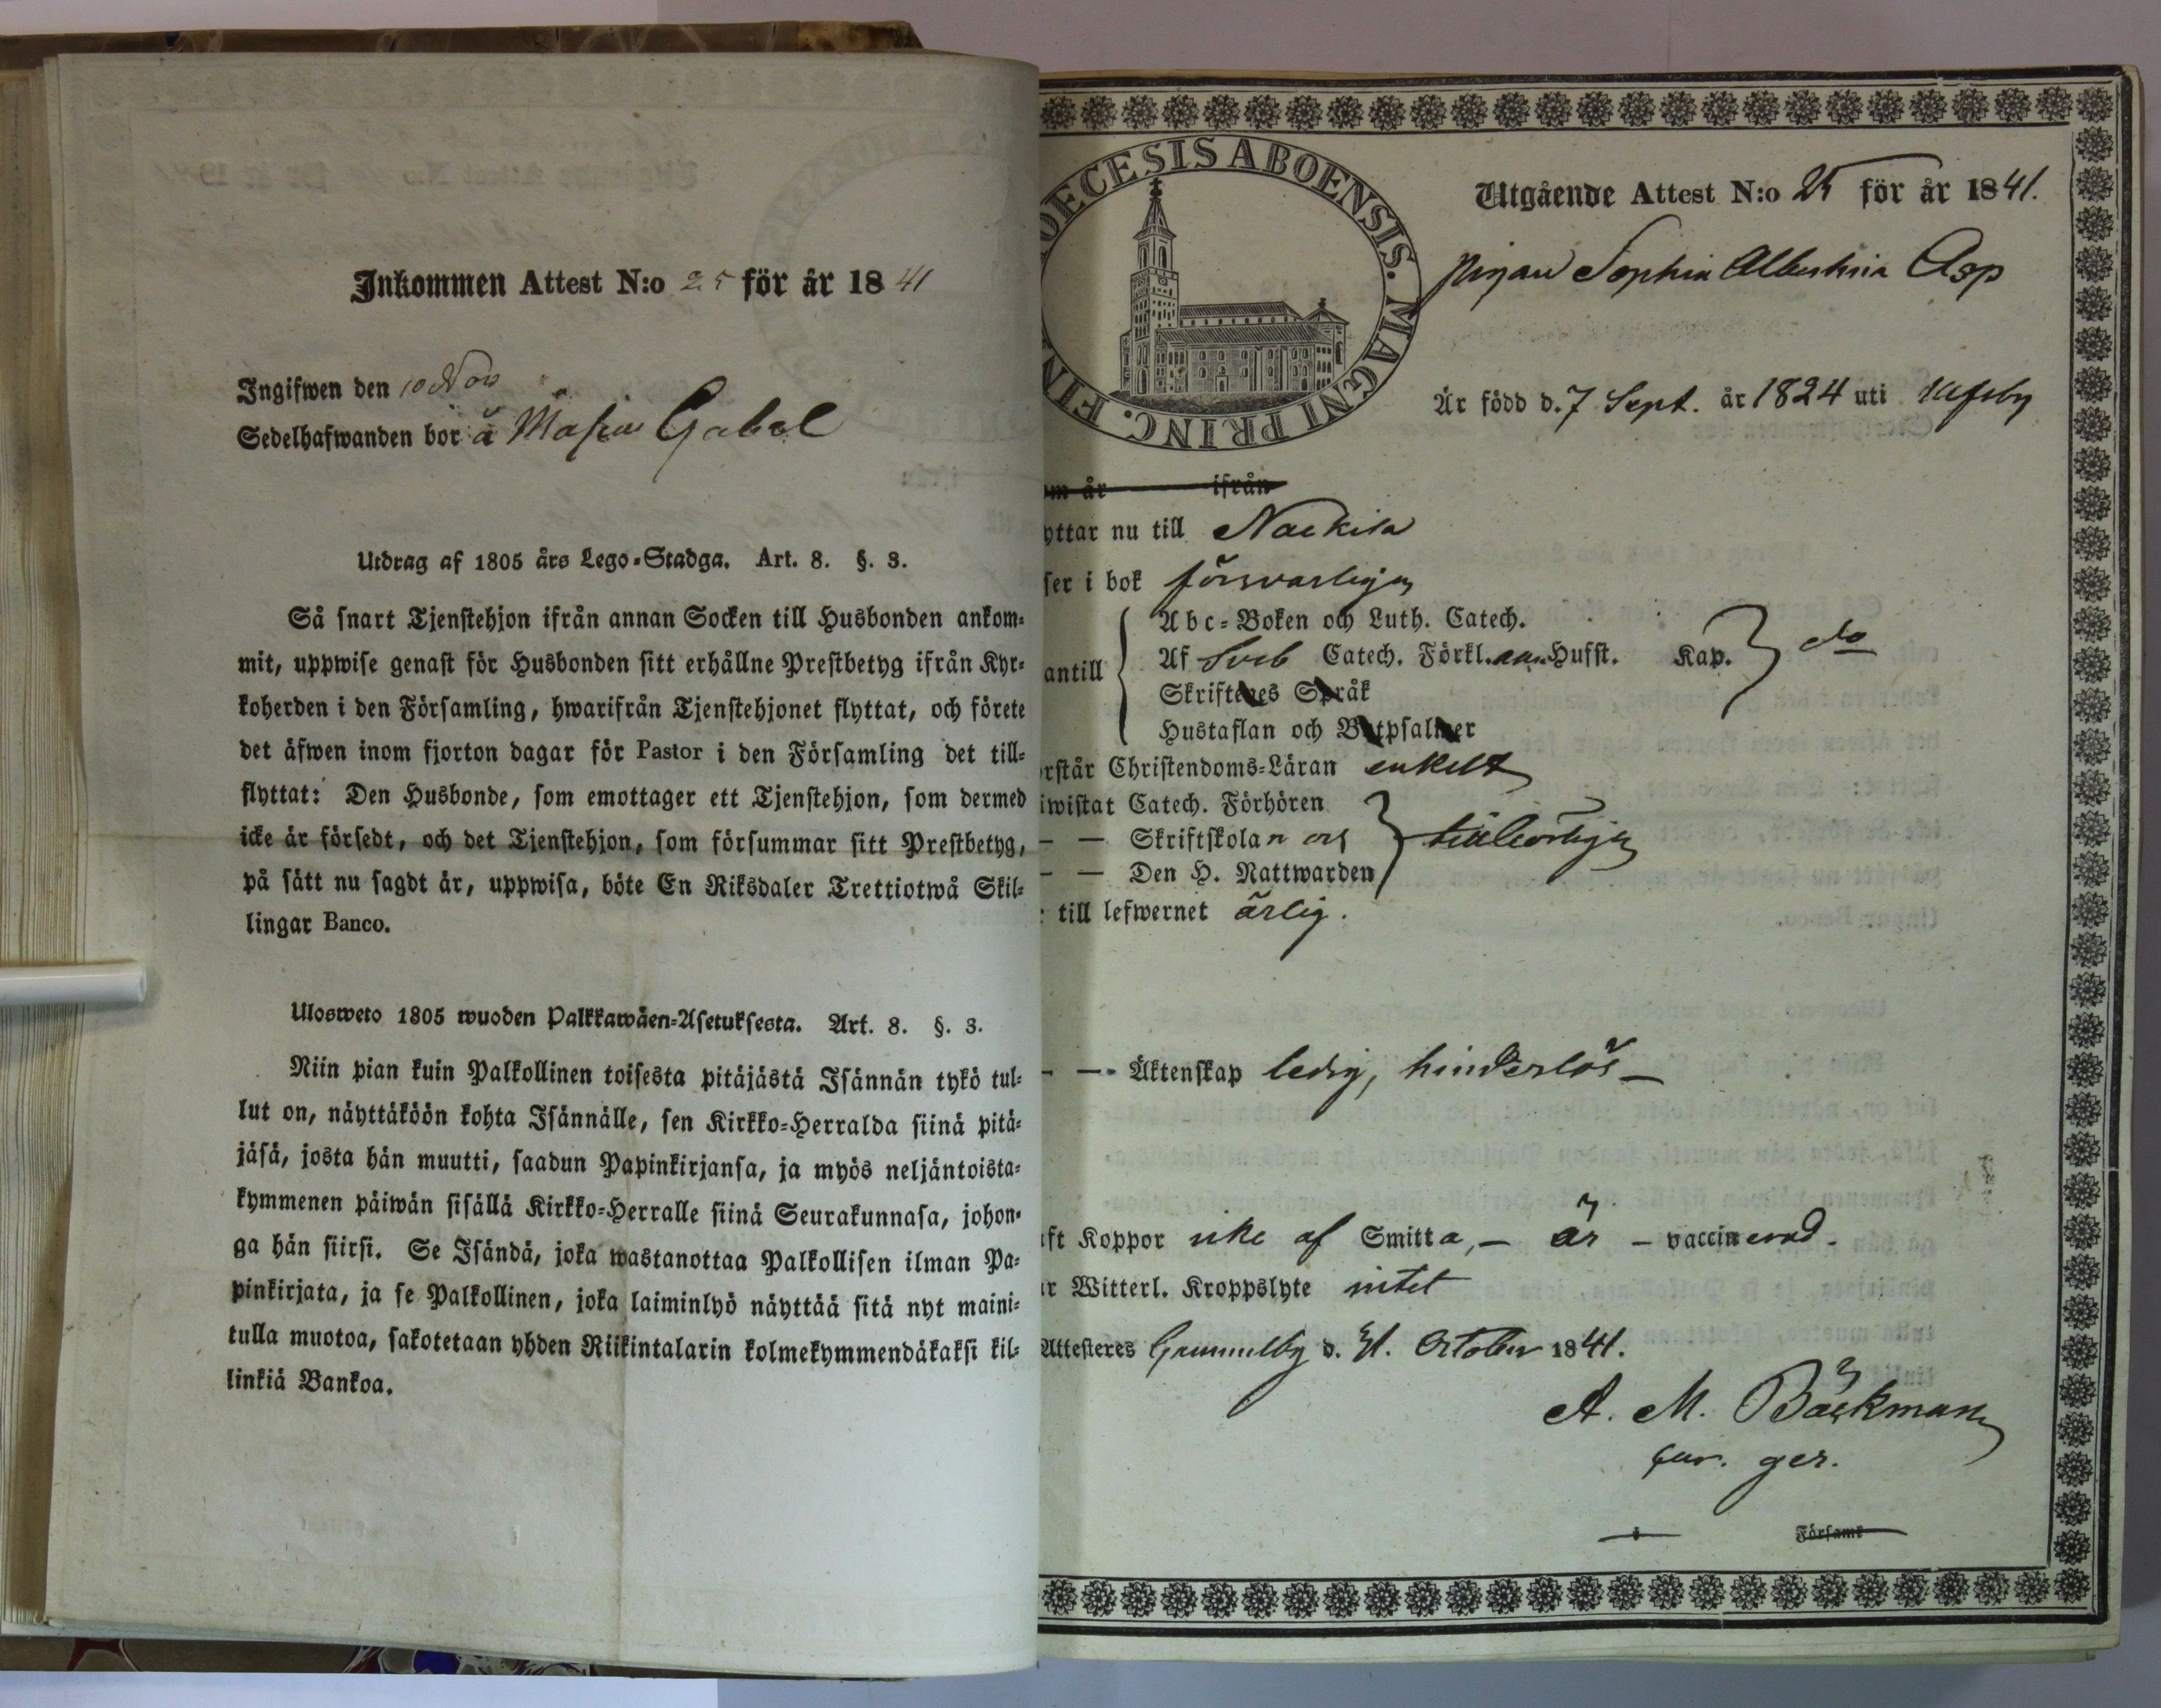 Inkommen Attest N:o 25 för år 1841
Ingifwen den 10 Nov
Sedelhafwanden bor å Masia Gabel
Utdrag af 1805 års Lego-Stadga. Art. 8. §. 3.
Så snart Tjenstehjon ifrån annan Socken till Husbonden ankom-
mit, uppwise genast för Husbonden sitt erhållne Prestbetyg ifrån Kyr-
koherden i den Församling, hwarifrån Tjenstehjonet flyttat, och förete
det äfwen inom fjorton dagar för Pastor i den Församling det till-
flyttat: Den Husbonde, som emottager ett Tjenstehjon, som dermed
icke är försedt, och det Tjenstehjon, som försummar sitt Prestbetyg,
på sätt nu sagdt är, uppwisa, böte En Riksdaler Trettiotwå Skil-
lingar Banco.
Ulosweto 1805 wuoden Palkkawäen-Asetuksesta. Art. 8. §. 3.
Niin pian kuin Palkollinen toisesta pitäjästä Isännän tykö tul-
lut on, näyttäköön kohta Isännälle, sen Kirkko-Herralda siinä pitä-
jäsä, josta hän muutti, saadun Papinkirjansa, ja myös neljäntoista-
kymmenen päiwän sisällä Kirkko-Herralle siinä Seurakunnasa, johon-
ga hän siirsi. Se Isändä, joka wastanottaa Palkollisen ilman Pa-
pinkirjata, ja se Palkollinen, joka laiminlyö näyttää sitä nyt maini-
tulla muotoa, sakotetaan yhden Riikintalarin kolmekymmendäkaksi kil-
linkiä Bankoa.
OECESIS ABOENSIS. MAGNI PRINC. FIN
Utgående Attest N:o 25 för år 1841.
Pigan Sophia Albertina Asp
Är född d. 7 Sept. år 1824 uti Ulfsby
om år ifrån
yttar nu till Nackila
ser i bok försvarligen
antill
Abc-Boken och Luth. Catech.
Af Sveb Catech. Förkl. Hufst. Kap. do
Skriftenes Språk
Hustaflan och Botpsalmer
rstår Christendoms-Läran enkelt
iwistat Catech. Förhören
— — Skriftskolan och tillbörligen
— — Den H. Nattwarden
till lefwernet ärlig.
— — Äktenskap ledig, hinderlös —
ft Koppor icke af Smitta, — är — vaccinerad.
r Witterl. Kroppslyte intet
Attesteres d. 31. October 1841.
A. M. Bäckman
ger.
i Församl